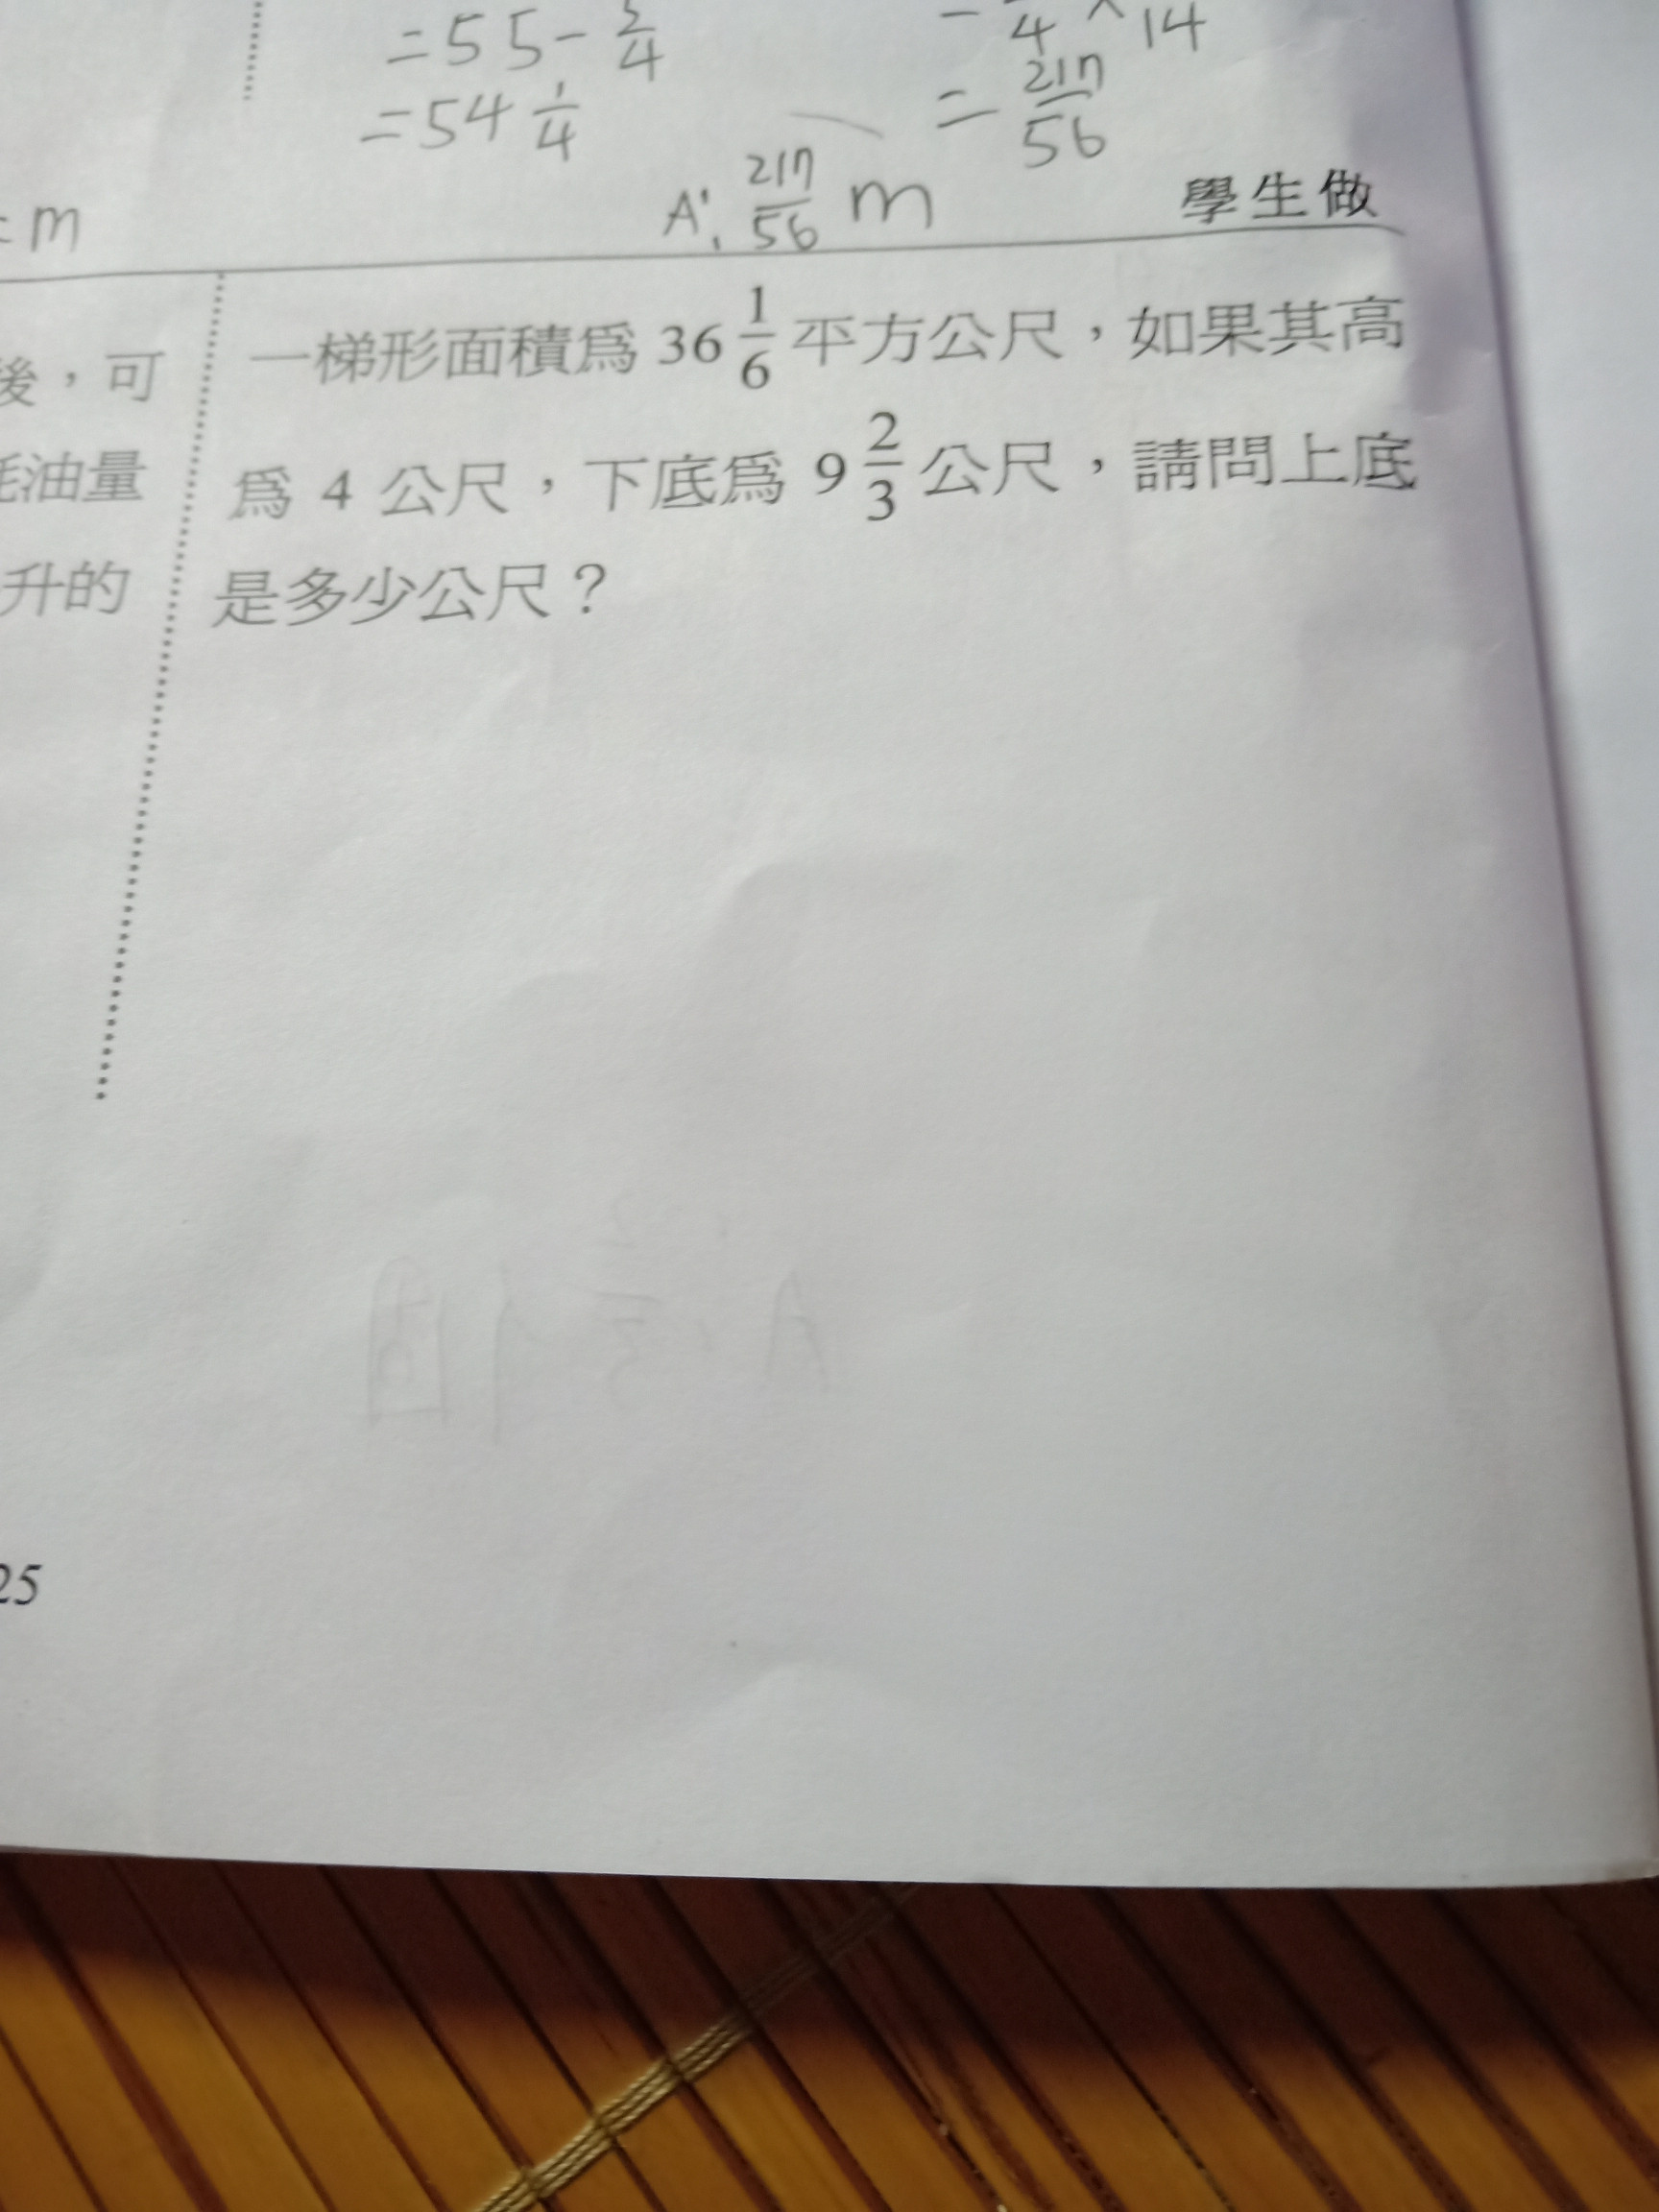 =55-3/4
4 × 14
=54 1/4
= 217/56
A: 217/56 m
m
學生做
一梯形面積爲 36 1/6 平方公尺，如果其高
後，可
爲 4 公尺，下底爲 9 2/3 公尺，請問上底
油量
是多少公尺？
升的
25